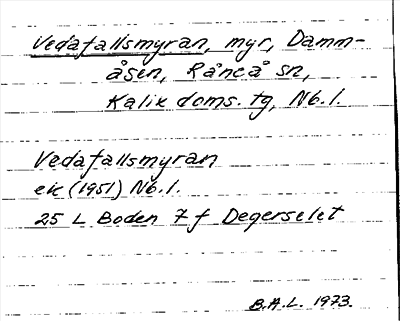 Vedafallsmyran, myr, Damm-
åsen, Råneå sn,
Kalix doms. tg, Nb. l.
Vedafallsmyran
eic (1951) Nb. l.
25 L Boden 7 f Degerselet
B.A.L. 1973.